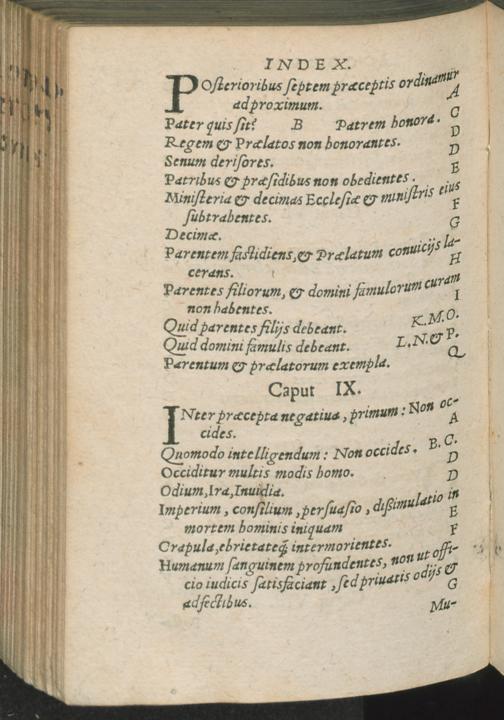 INDEX.
POsterioribus septem præceptis ordinamur
ad proximum. A
Pater quis sit? B Patrem honora. C
Regem & Prælatos non honorantes. D
Senum derisores. D
Patribus & præsidibus non obedientes. E
Ministeria & decimas Ecclesiæ & ministris eius
subtrahentes. F
Decimæ. G
Parentem fastidiens, & Prælatum conuicijs la-
cerans. H
Parentes filiorum, & domini famulorum curam
non habentes. I
Quid parentes filijs debeant. K.M.O.
Quid domini famulis debeant. L.N.& P.
Parentum & prælatorum exempla. Q
Caput IX.
INter præcepta negatiua, primum: Non oc-
cides. A
Quomodo intelligendum: Non occides. B.C.
Occiditur multis modis homo. D
Odium, Ira, Inuidia. D
Imperium, consilium, persuasio, dißimulatio in
mortem hominis iniquam E
Crapula, ebrietateq́; intermorientes. F
Humanum sanguinem profundentes, non ut offi-
cio iudicis satisfaciant, sed priuatis odijs &
adfectibus. G
Mu-